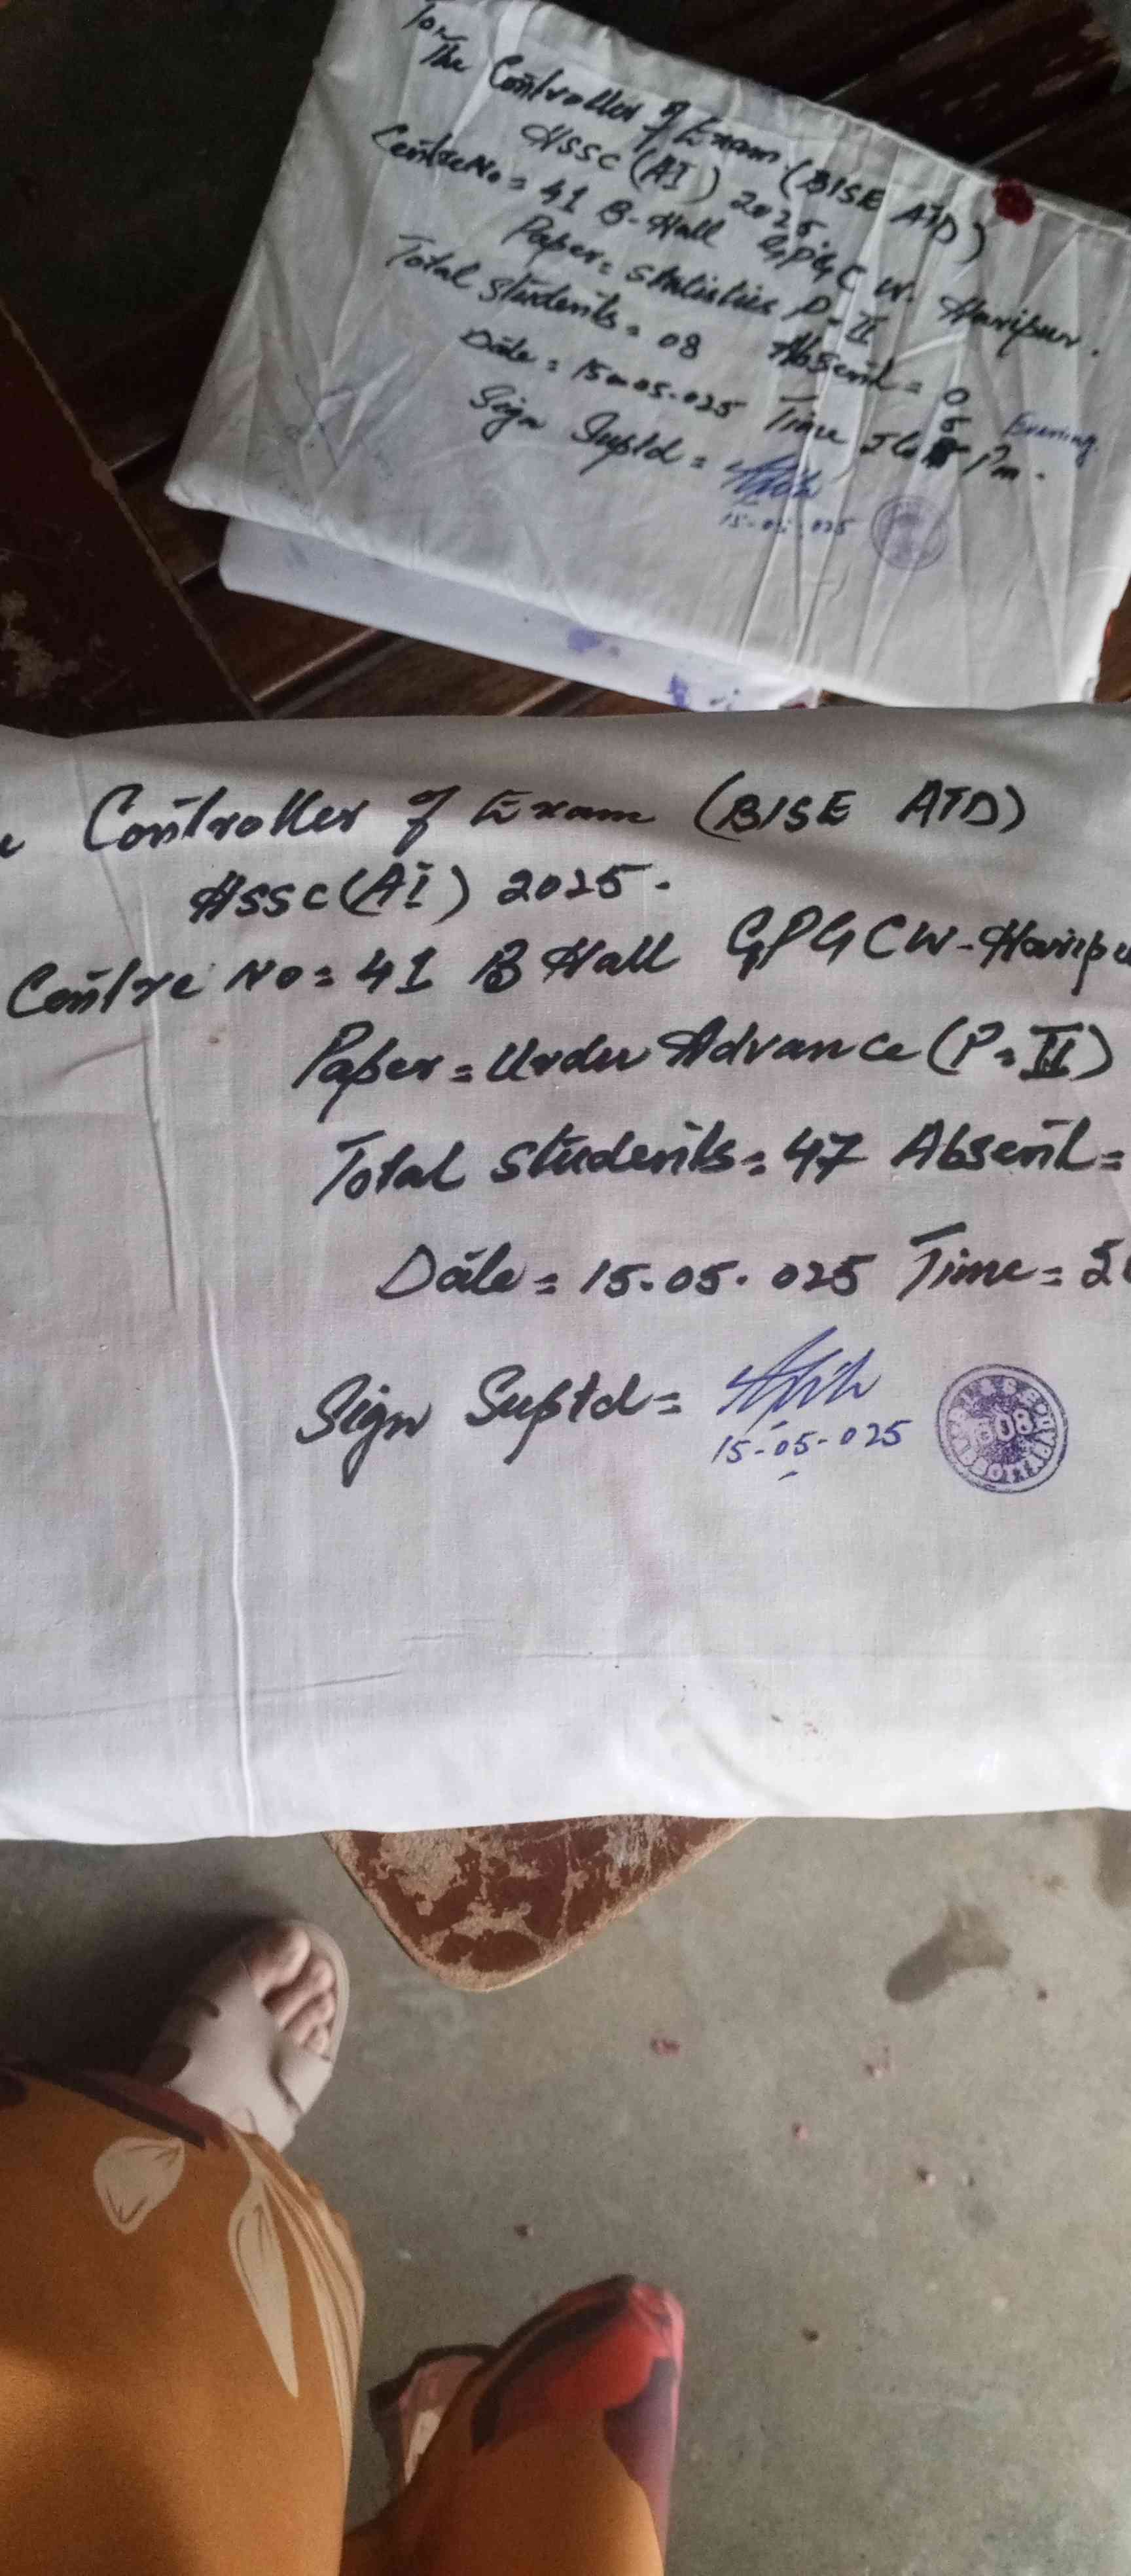 To,
The Controller of Exam (BISE ATD)
HSSC (AI) 2025.
Centre No = 41 B-Hall GPGC W. Haripur.
Paper = Statistics P-II
Total Students = 08 Absent = 0
Date = 15-05-025 Time 2 to 5 Pm. Evening
Sign Suptd =
15-05-025
Controller of Exam (BISE ATD)
HSSC (AI) 2025.
Centre No = 41 B Hall GPGCW-Haripu
Paper = Urdu Advance (P-II)
Total Students = 47 Absent =
Date = 15.05.025 Time = 2
Sign Suptd =
15-05-025
608